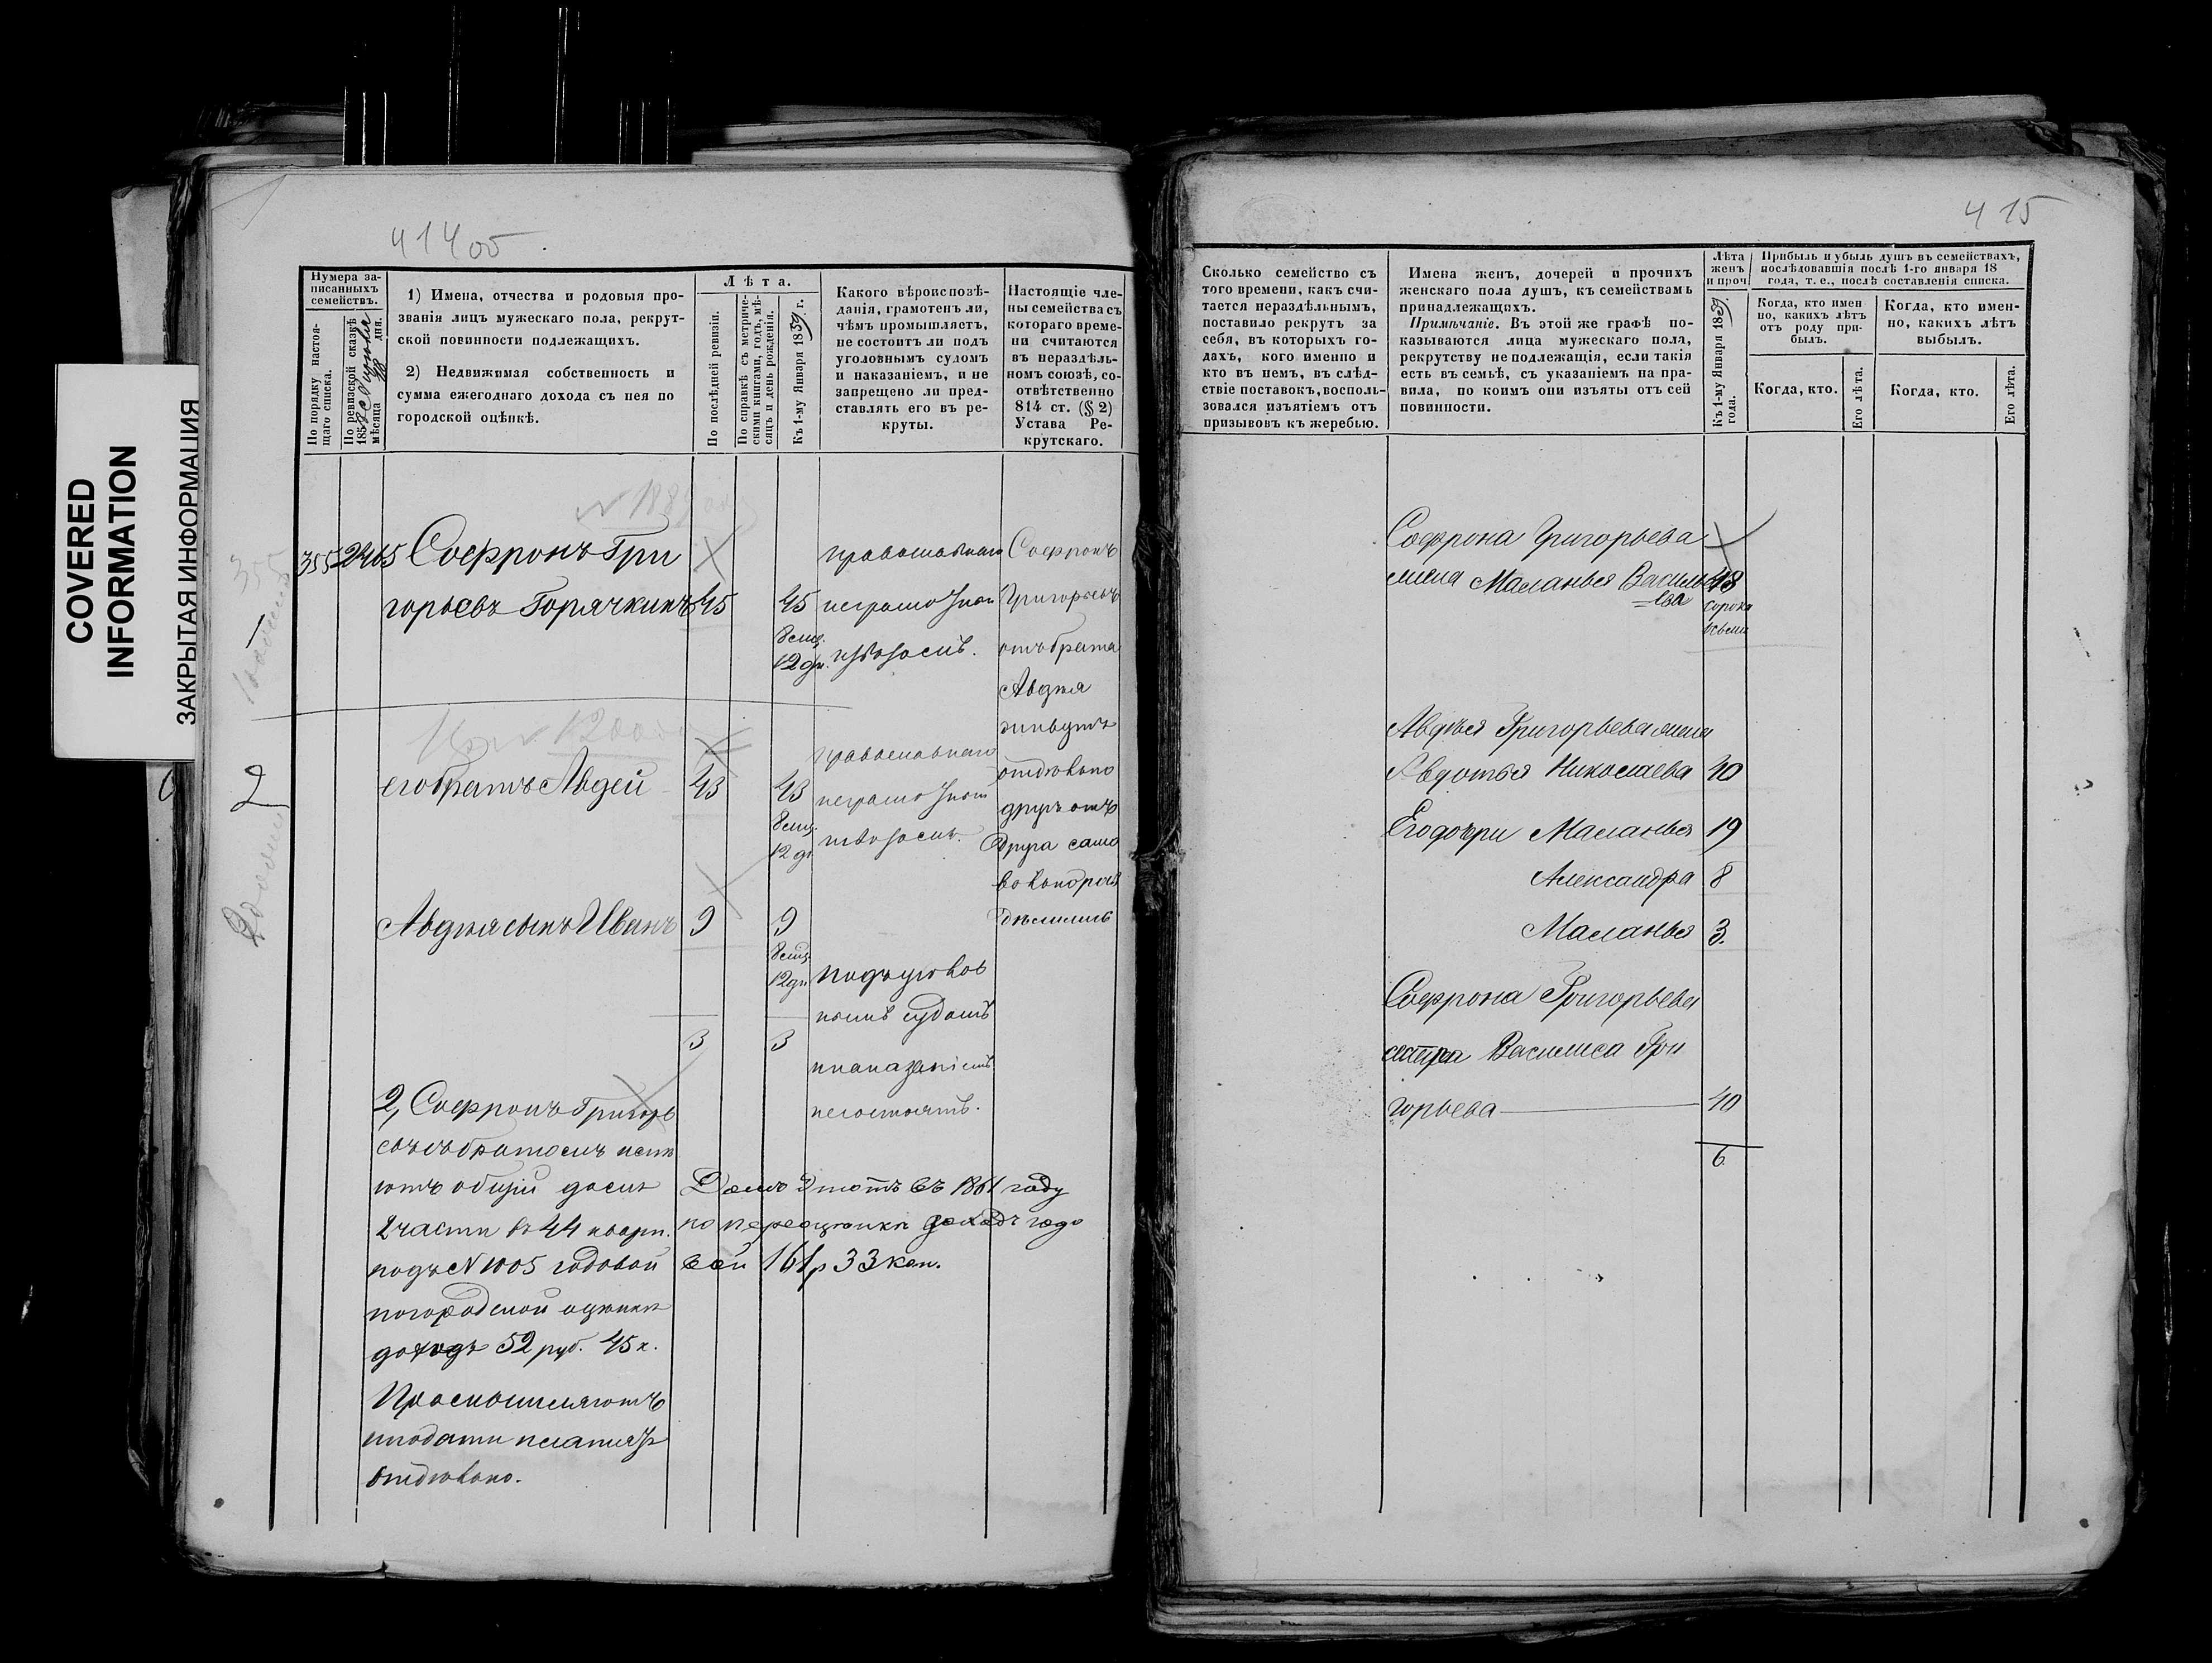 COVERED
INFORMATION
ЗАКРЫТАЯ ИНФОРМАЦИЯ
414 об.
Нумера за-
писанныхъ
семействъ.
По порядку настоя-
щаго списка.
По ревизской сказкѣ
185
мѣсяца
дня.
1) Имена, отчества и родовыя про-
званія лицъ мужескаго пола, рекрут-
ской повинности подлежащихъ.
2) Недвижимая собственность и
сумма ежегоднаго дохода съ нея по
городской оцѣнкѣ.
Лѣта.
По послѣдней ревизіи.
По справкѣ съ метриче-
скими книгами, годъ, мѣ-
сяцъ и день рожденія.
Къ 1-му Января 1859 г.
Какого вѣроисповѣ-
данія, грамотенъ ли,
чѣмъ промышляетъ,
не состоитъ ли подъ
уголовнымъ судомъ
и наказаніемъ, и не
запрещено ли пред-
ставлять его въ ре-
круты.
Настоящіе чле-
ны семейства съ
котораго време-
ни считаются
въ нераздѣль-
номъ союзѣ, со-
отвѣтственно
814 ст. (§ 2)
Устава Ре-
крутскаго.
355 2465 Софронъ Гри
горьевъ Горячкинъ 45 45
8 мц.
12 дн.
православнаго
неграмотенъ
извозомъ.
Софронъ
Григорьевъ
отъ брата
Авдея
живутъ
отдѣльно
другъ отъ
друга само
вольно раз
дѣлились
2
его братъ Авдей 43 43
8 мц.
12 дн
православнаго
неграмотенъ
извозомъ.
Авдея сынъ Иванъ 9 9
8 мц.
12 дн
подъ уголов
нымъ судомъ
и наказаніемъ
несостоятъ.
3 3
2, Софронъ Григорь
евъ съ братомъ имѣ
ютъ общій домъ
2 части въ 44 кварт.
подъ N 1005 годовой
по городской оцѣнкѣ
доходъ 52 руб. 45 к.
Промышляютъ
и подати платятъ
отдѣльно.
Домъ этотъ въ 1861 году
по переоцѣнки доходъ годо
вой 161 р 33 коп.
415
Сколько семейство съ
того времени, какъ счи-
тается нераздѣльнымъ,
поставило рекрутъ за
себя, въ которыхъ го-
дахъ, кого именно и
кто въ немъ, въ слѣд-
ствіе поставокъ, восполь-
зовался изъятіемъ отъ
призывовъ къ жеребью.
Имена женъ, дочерей и прочихъ
женскаго пола душъ, къ семействамъ
принадлежащихъ.
Примѣчаніе. Въ этой же графѣ по-
казываются лица мужескаго пола,
рекрутству не подлежащія, если такія
есть въ семьѣ, съ указаніемъ на пра-
вила, по коимъ они изъяты отъ сей
повинности.
Лѣта
женъ
и проч.
Къ 1-му Января 1859
года.
Прибыль и убыль душъ въ семействахъ,
послѣдовавшія послѣ 1-го января 18
года, т. е., послѣ составленія списка.
Когда, кто имен
но, какихъ лѣтъ
отъ роду при-
былъ.
Когда, кто имен-
но, какихъ лѣтъ
выбылъ.
Когда, кто.
Его лѣта.
Когда, кто.
Его лѣта.
Софрона Григорьева
жена Маланья Василь 48
ева сорокъ
восемь
Авдѣя Григорьева жена
Авдотья Николаева 40
Его дочери Маланья 19
Александра 8
Маланья 3.
Софрона Григорьева
сестра Василиса Гри
горьева 40
6